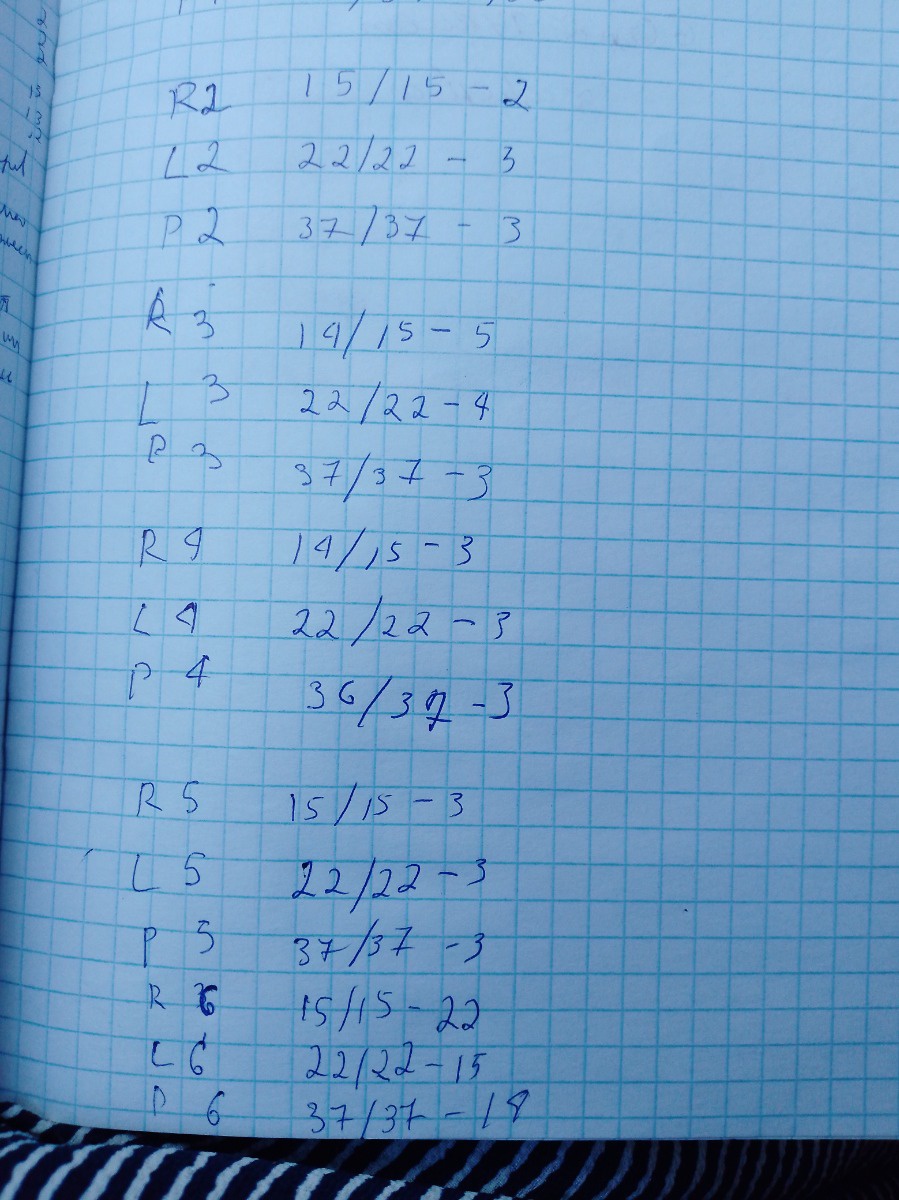 R2 15/15 - 2
L2 22/22 - 3
P2 37/37 - 3
R3 14/15 - 5
L3 22/22 - 4
P3 37/37 - 3
R4 14/15 - 3
L4 22/22 - 3
P4 36/37 - 3
R5 15/15 - 3
L5 22/22 - 3
P5 37/37 - 3
R6 15/15 - 22
L6 22/22 - 15
P6 37/37 - 18